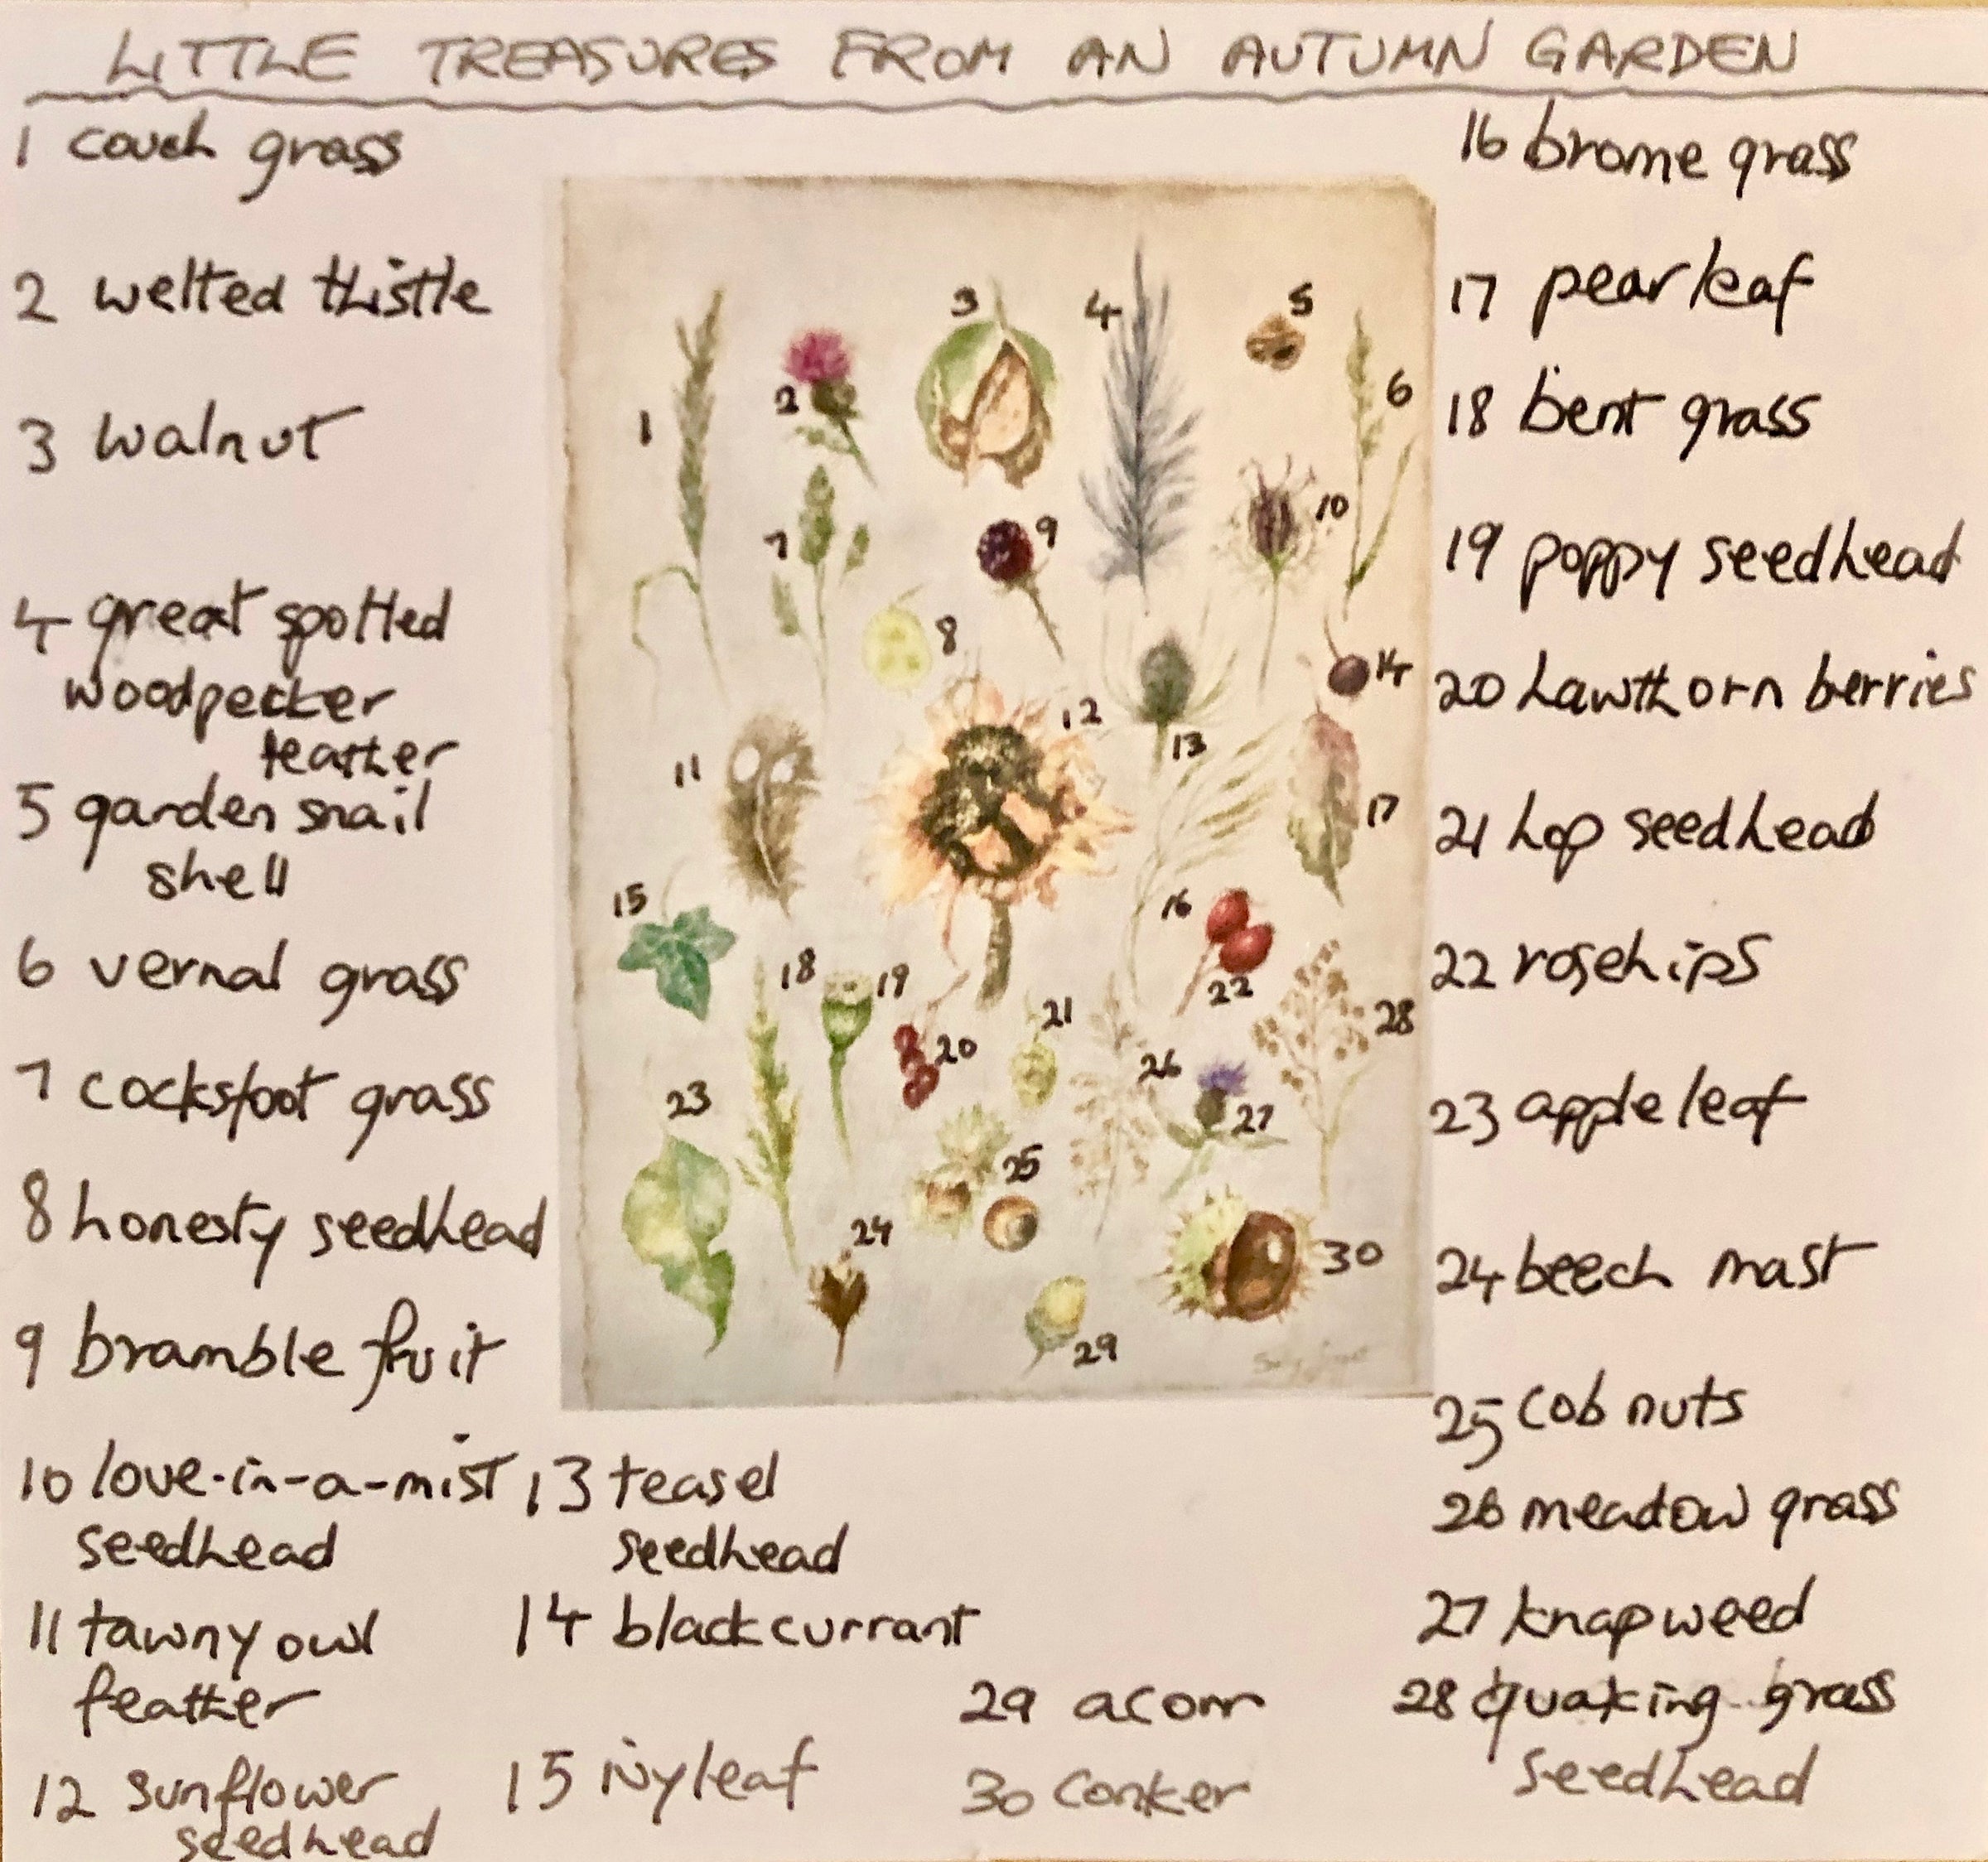 LITTLE TREASURES FROM AN AUTUMN GARDEN
1 couch grass
2 welted thistle
3 walnut
4 great spotted
woodpecker
feather
5 garden snail
shell
6 vernal grass
7 cocksfoot grass
8 honesty seedhead
9 bramble fruit
10 love-in-a-mist
seedhead
11 tawny owl
feather
12 sunflower
seedhead
13 teasel
seedhead
14 blackcurrant
15 ivy leaf
29 acorn
30 conker
16 brome grass
17 pear leaf
18 bent grass
19 poppy seedhead
20 hawthorn berries
21 hop seedhead
22 rosehips
23 apple leaf
24 beech mast
25 cob nuts
26 meadow grass
27 knapweed
28 quaking grass
seedhead
1
2
3
4
5
6
7
8
9
10
11
12
13
14
15
16
17
18
19
20
21
22
23
24
25
26
27
28
29
30